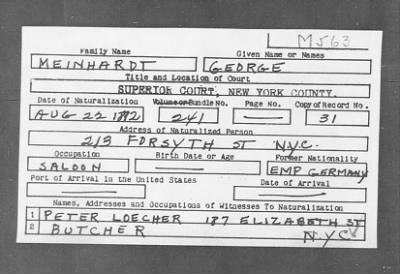 M563
Family Name Given Name or Names
MEINHARDT GEORGE
Title and Location of Court
SUPERIOR COURT, NEW YORK COUNTY.
Date of Naturalization Volume or Bundle No. Page No. Copy of Record No.
AUG 22 1892 241 — 31
Address of Naturalized Person
213 FORSYTH ST N.Y.C.
Occupation Birth Date or Age Former Nationality
SALOON — EMP GERMANY
Port of Arrival in the United States Date of Arrival
— —
Names, Addresses and Occupations of Witnesses To Naturalization
1 PETER LOECHER 187 ELIZABETH ST
2 BUTCHER N.Y.C